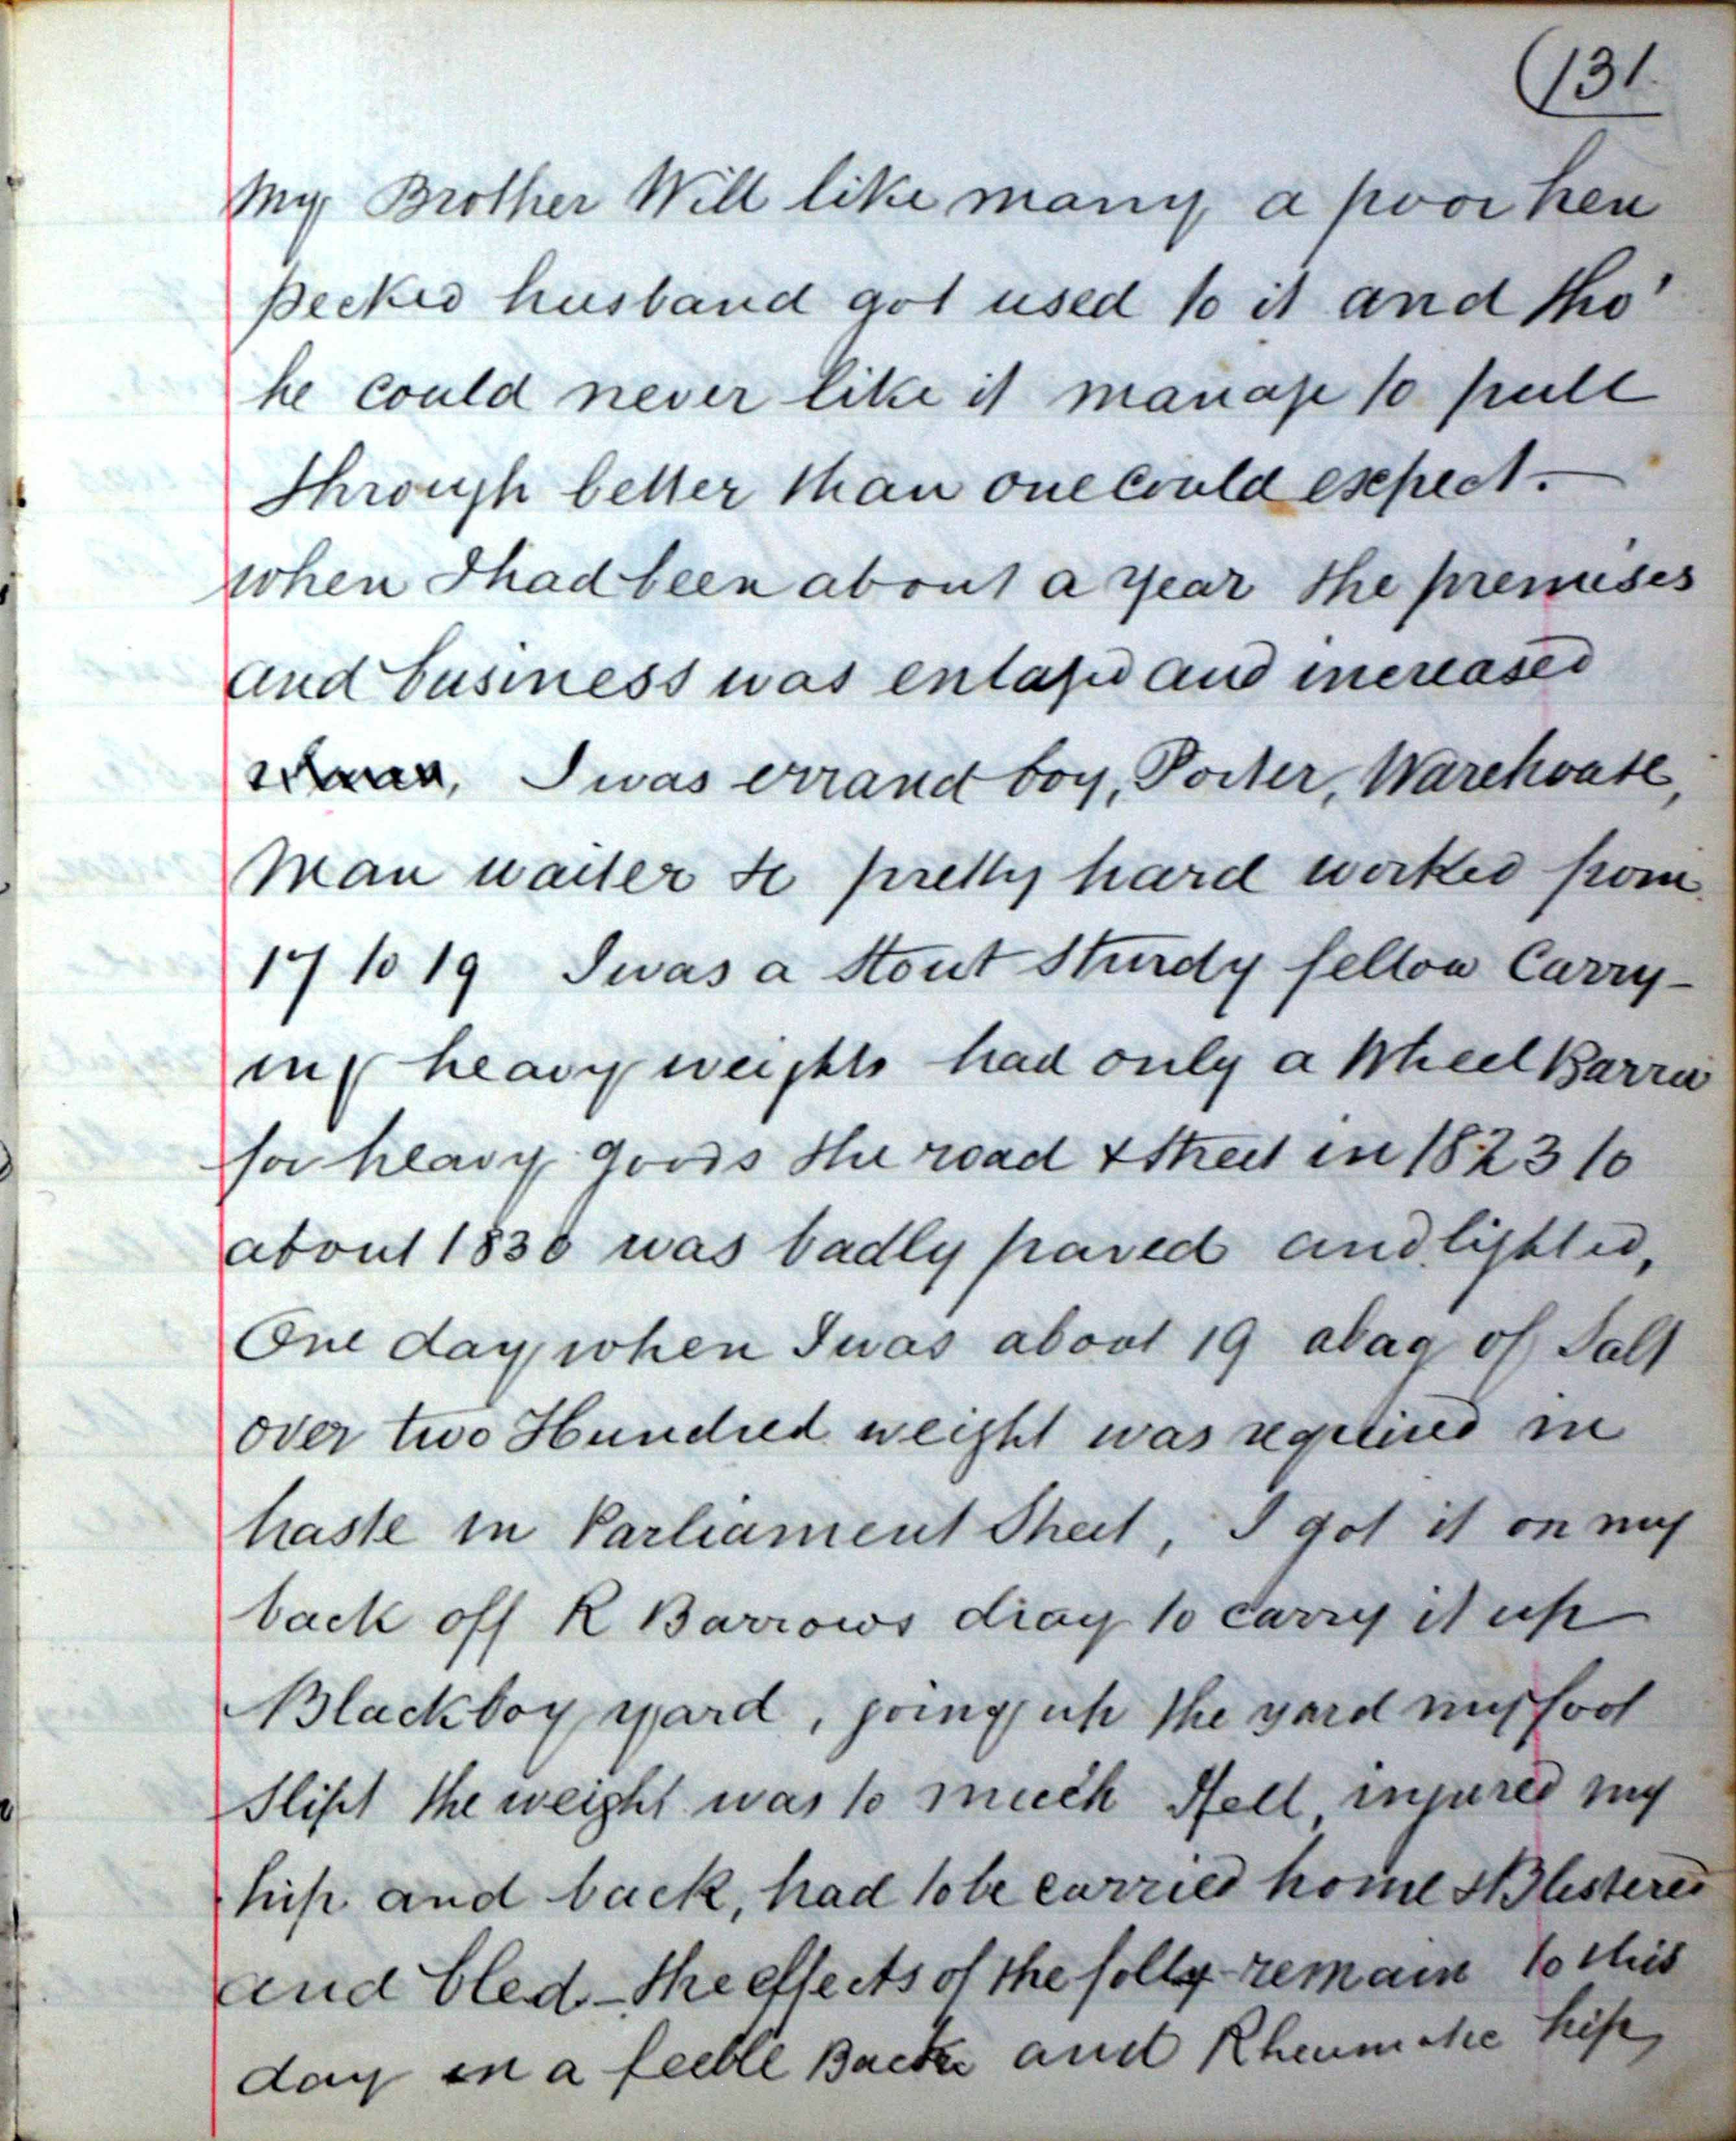 (131.
My Brother Will like many a poor hen
pecked husband got used to it and tho'
he could never like it manage to pull
through better than one could expect. —
when I had been about a year the premises
and business was enlaged and increased
I was errand boy, Porter, Warehouse,
Man waiter &c pretty hard worked from
17 to 19 I was a Stout Sturdy fellow Carry-
ing heavy weights had only a Wheel Barrow
for heavy goods the road & Street in 1823 to
about 1830 was badly paved and lighted,
One day when I was about 19 a bag of Salt
over two Hundred weight was required in
haste in Parliament Street, I got it on my
back off R Barrows dray to carry it up
Blackboy yard, going up the yard my foot
Slipt the weight was to much I fell, injured my
hip and back, had to be carried home & Blistered
and bled - the effects of the folly remain to this
day in a feeble Back and Rheumatic hip,